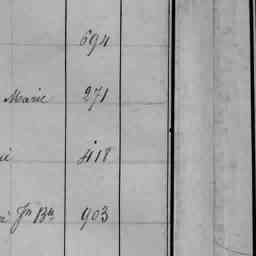 694
Marie 271
418
Jn Bte 903